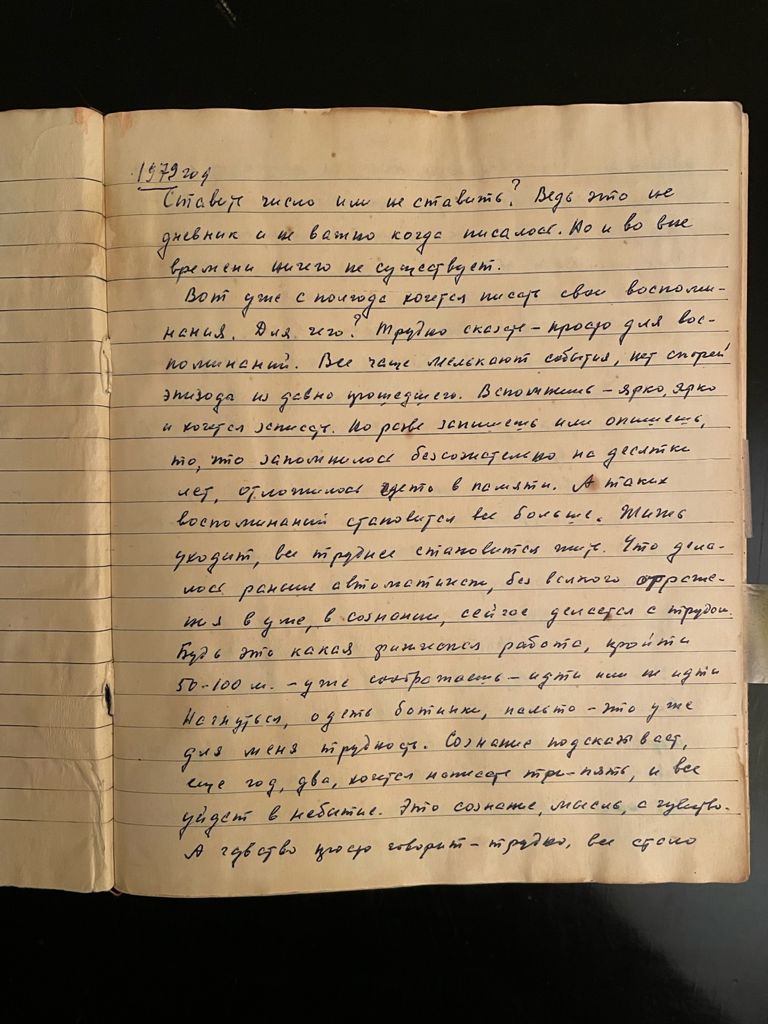 1979 год
Ставить число или не ставить? Ведь это не
дневник и не важно когда писалось. Но и во вне
времени ничего не существует.
Вот уже с полгода хочется писать свои воспоми-
нания. Для чего? Трудно сказать – просто для вос-
поминаний. Все чаще мелькают события, нет скорей
эпизоды из давно прошедшего. Вспомнишь – ярко, ярко
и хочется записать. Но разве запишешь или опишешь,
то, что запомнилось безсознательно на десятки
лет, отложилось где-то в памяти. А таких
воспоминаний становится все больше. Жизнь
уходит, все труднее становится жить. Что дела-
лось раньше автоматически, без всякого отраже-
ния в уме, в сознании, сейчас делается с трудом.
Будь это какая физическая работа, пройти
50-100 м. – уже соображаешь – идти или не идти
Нагнуться, одеть ботинки, пальто – это уже
для меня трудность. Сознание подсказывает,
еще год, два, хочется написать три-пять, и все
уйдет в небытие. Это сознание, мысль, а чувство.
А чувство просто говорит – трудно, все стало